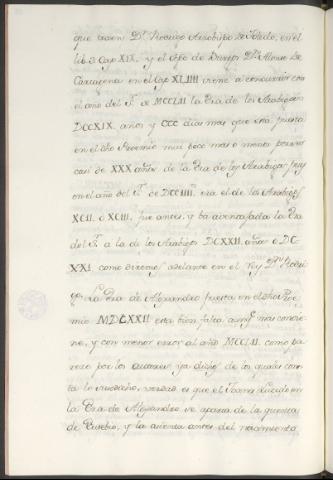 que traen Dn Rodrigo Arzobispo de Toledo, en el
lib 3 Cap XIX, y el Opo de Burgos Dn Alonso de
Cartagena en el Cap XLIIII viene a concurrir con
el año del Sr de MCCLII la Era de los Arabigos en
DCCXIX años y CCC dias mas que esta puesta
en el dho Proemio mui poco mas o menos porvoz
casi de XXX años de la Era de los Arabigos pues
en el año del Sr de DCCIIII era el de los Arabigos
XCII o XCIII, fue antes, y ba aventajada la Era
del Sr a la de los Arabigos DCXXII años o DC
XXI, como diremos adelante en el Rey Dn Rodri
go, la Era de Alexandro puesta en el dho Proe
mio MDLXXII esta bien falta aunq mas convie
ne, y con menor error al año MCCLII, como pa
rece por los autores ya dichos de los quales cons
ta lo susodicho, verdad es que el
la Era de Alexandro se aparta de la quenta
de Eusebio, y la cuenta antes del nacimiento